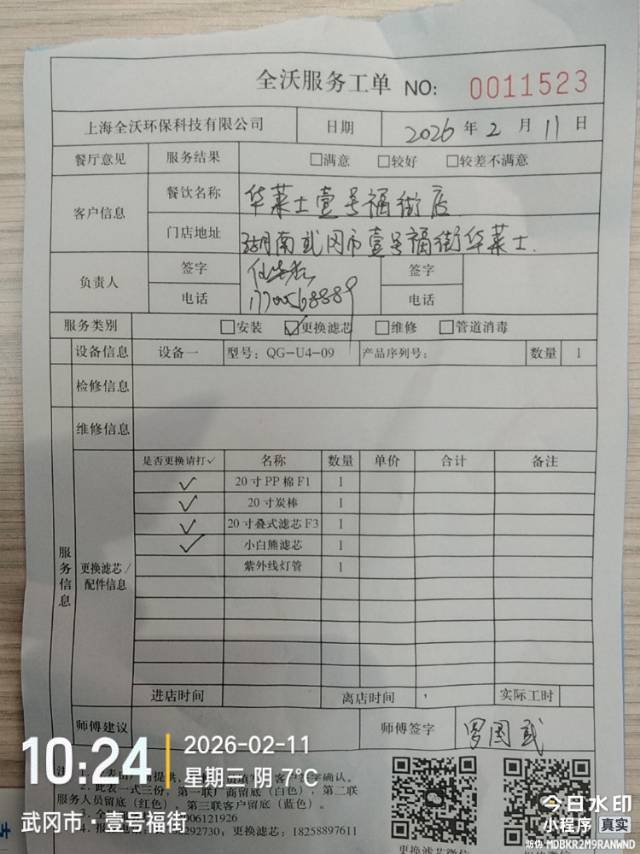 全沃服务工单 NO: 0011523
上海全沃环保科技有限公司 日期 2026年2月11日
餐厅意见 服务结果 □满意 □较好 □较差不满意
客户信息 餐饮名称 华莱士壹号福街店
门店地址 湖南武冈市壹号福街华莱士.
负责人 签字 签字
电话 电话
服务类别 □安装 ☑更换滤芯 □维修 □管道消毒
设备信息 设备一 型号: QG-U4-09 产品序列号: 数量 1
检修信息
维修信息
服务信息
更换滤芯/配件信息
是否更换请打√ 名称 数量 单价 合计 备注
✓ 20寸PP棉F1 1
✓ 20寸炭棒 1
✓ 20寸叠式滤芯F3 1
✓ 小白熊滤芯 1
紫外线灯管 1
进店时间 离店时间 实际工时
师傅建议 师傅签字 罗国武
10:24
2026-02-11
星期三 阴 7℃
武冈市·壹号福街
字确认。
2. 此表一式三份；第一联厂商留底（白色），第二联
服务人员留底（红色），第三联客户留底（蓝色）。
006121926
292730；更换滤芯：18258897611
今日水印
小程序 真实
防伪 MDBKR2M9RANWND